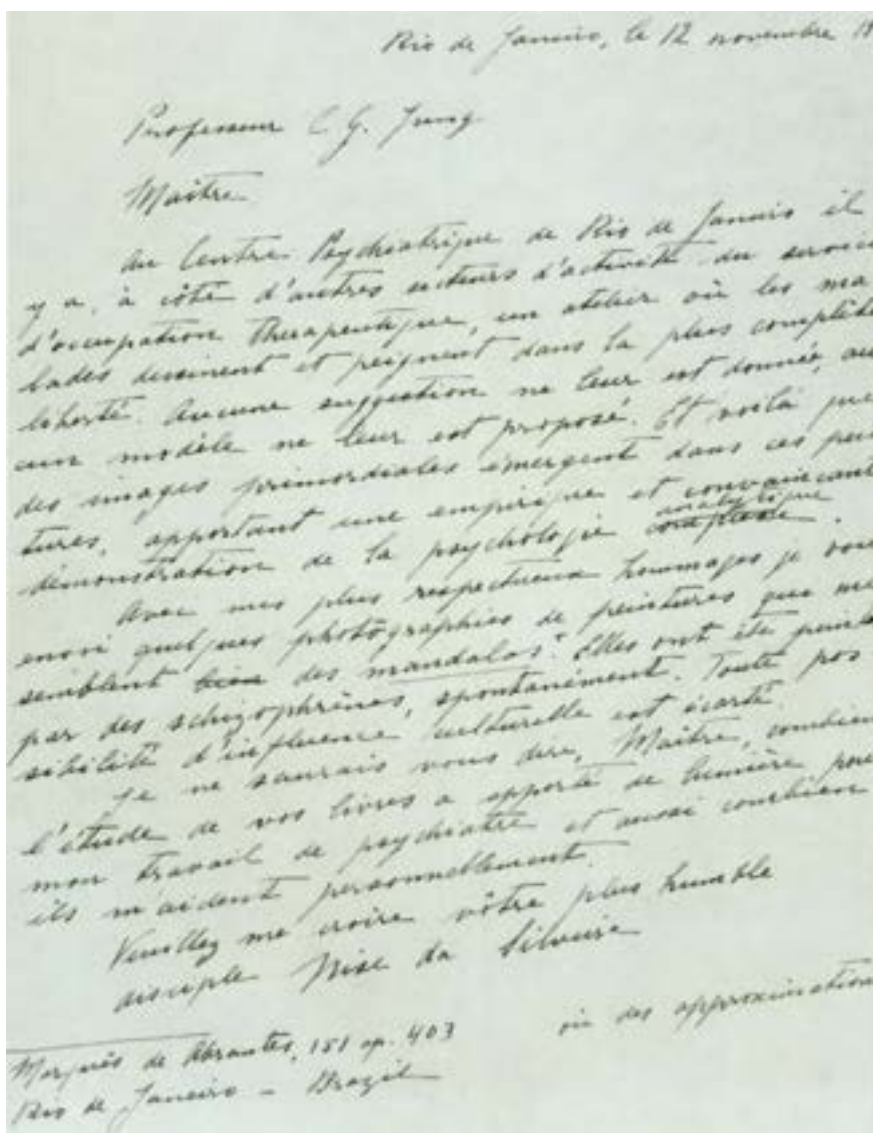 Rio de Janeiro, le 12 novembre 19
Professeur C. G. Jung
Maître
Au Centre Psychiatrique de Rio de Janeiro il
y a, à côté d'autres secteurs d'activité du service
d'occupation thérapeutique, un atelier où les ma
lades dessinent et peignent dans la plus complète
liberté. Aucune suggestion ne leur est donnée, au
cun modèle ne leur est proposé. Et voilà que
des images primordiales émergent dans ces pein
tures, apportant une empirique et convaincante
démonstration de la psychologie analytique complexe.
Avec mes plus respectueux hommages je vous
envoi quelques photographies de peintures que me
semblent bien des mandalas. Elles ont été peintes
par des schizophrènes, spontanément. Toute pos
sibilité d'influence culturelle est écarté.
Je ne saurais vous dire, Maître, combien
l'étude de vos livres a apporté de lumière pour
mon travail de psychiatre et aussi combien
ils m'aident personnellement.
Veuillez me croire vôtre plus humble
disciple Nise da Silveira
ou des approximations
Marquês de Abrantes, 151 ap. 403
Rio de Janeiro - Brazil